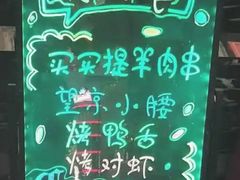 买买提羊肉串
望京小腰
烤鸭舌
烤对虾